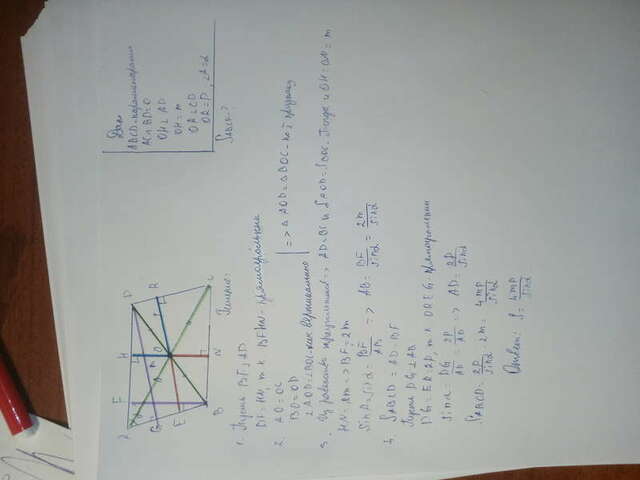 Дано:
ABCD - параллелограмм
AC ∩ BD = O
OH ⊥ AD
OH = m
OR ⊥ CD
OR = P, ∠A = α
S ABCD - ?
A F H D
G O R
E
B N C
Решение:
1. Пусть BF ⊥ AD
BF = HN, т.к BFHN - прямоугольник
2. AO = OC
BO = OD
∠AOD = ∠BOC - как вертикальные
=> △AOD = △BOC - по I признаку
3. Из равенства треугольников => AD = BC и S AOD = S BOC. Тогда и OH = ON = m
HN = 2m => BF = 2m
Sin A = Sin α = BF/AB => AB = BF/Sin α = 2m/Sin α
4. S ABCD = AD · BF
Пусть DG ⊥ AB
DG = ER = 2P, т.к DREG - прямоугольник
Sin α = DG/AD = 2P/AD => AD = 2P/Sin α
S ABCD = 2P/Sin α · 2m = 4mP/Sin α
Ответ: S = 4mP/Sin α